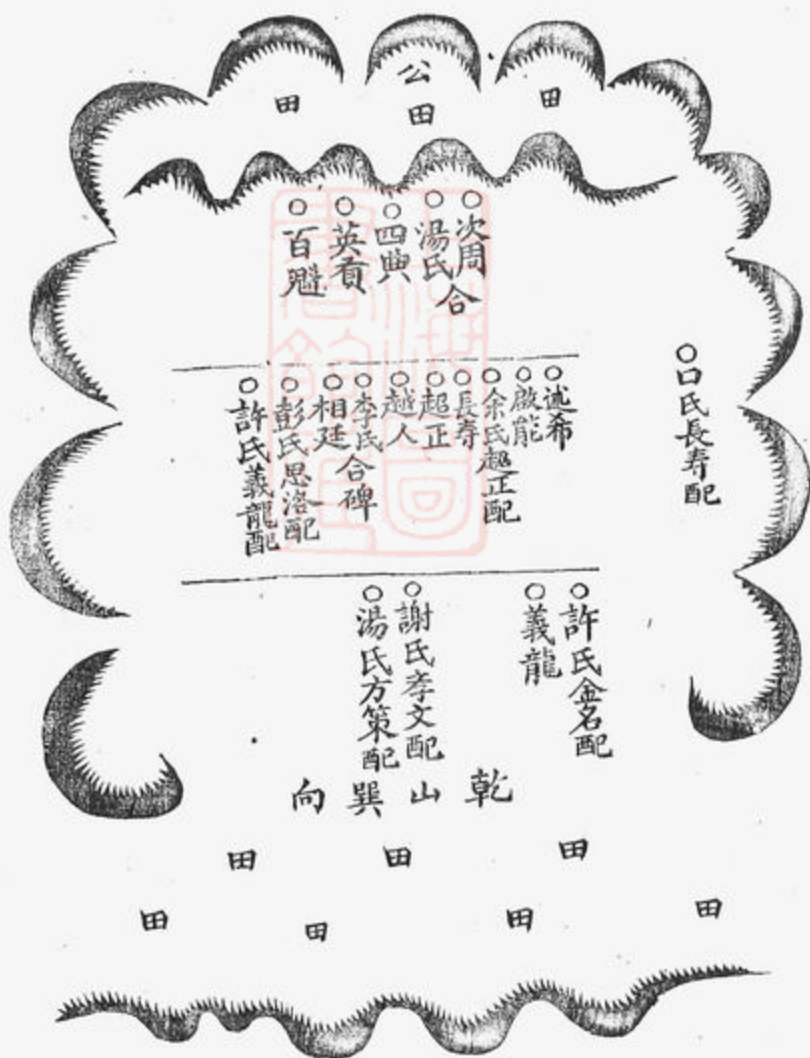 公
田
田
田
○次周合
○湯氏
○四興
○英貢
○百魁
○口氏長寿配
○述希
○啟能
○余氏超正配
○長寿
○超正
○越人
○李氏合碑
○相廷
○彭氏思洛配
○許氏義龍配
○許氏金名配
○義龍
○謝氏孝文配
○湯氏方策配
乾山巽向
田
田
田
田
田
田
田